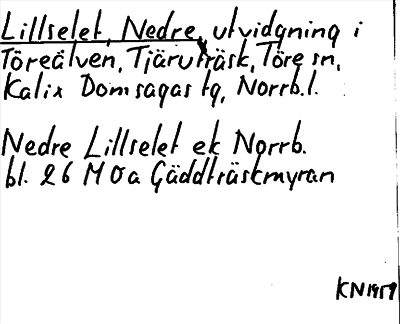 Lillselet, Nedre, utvidgning i
Töreälven, Tjäruträsk, Töre sn,
Kalix Domsagas tg, Norrb.l.
Nedre Lillselet ek Norrb.
bl. 26 M 0a Gäddträskmyran
KN 1959